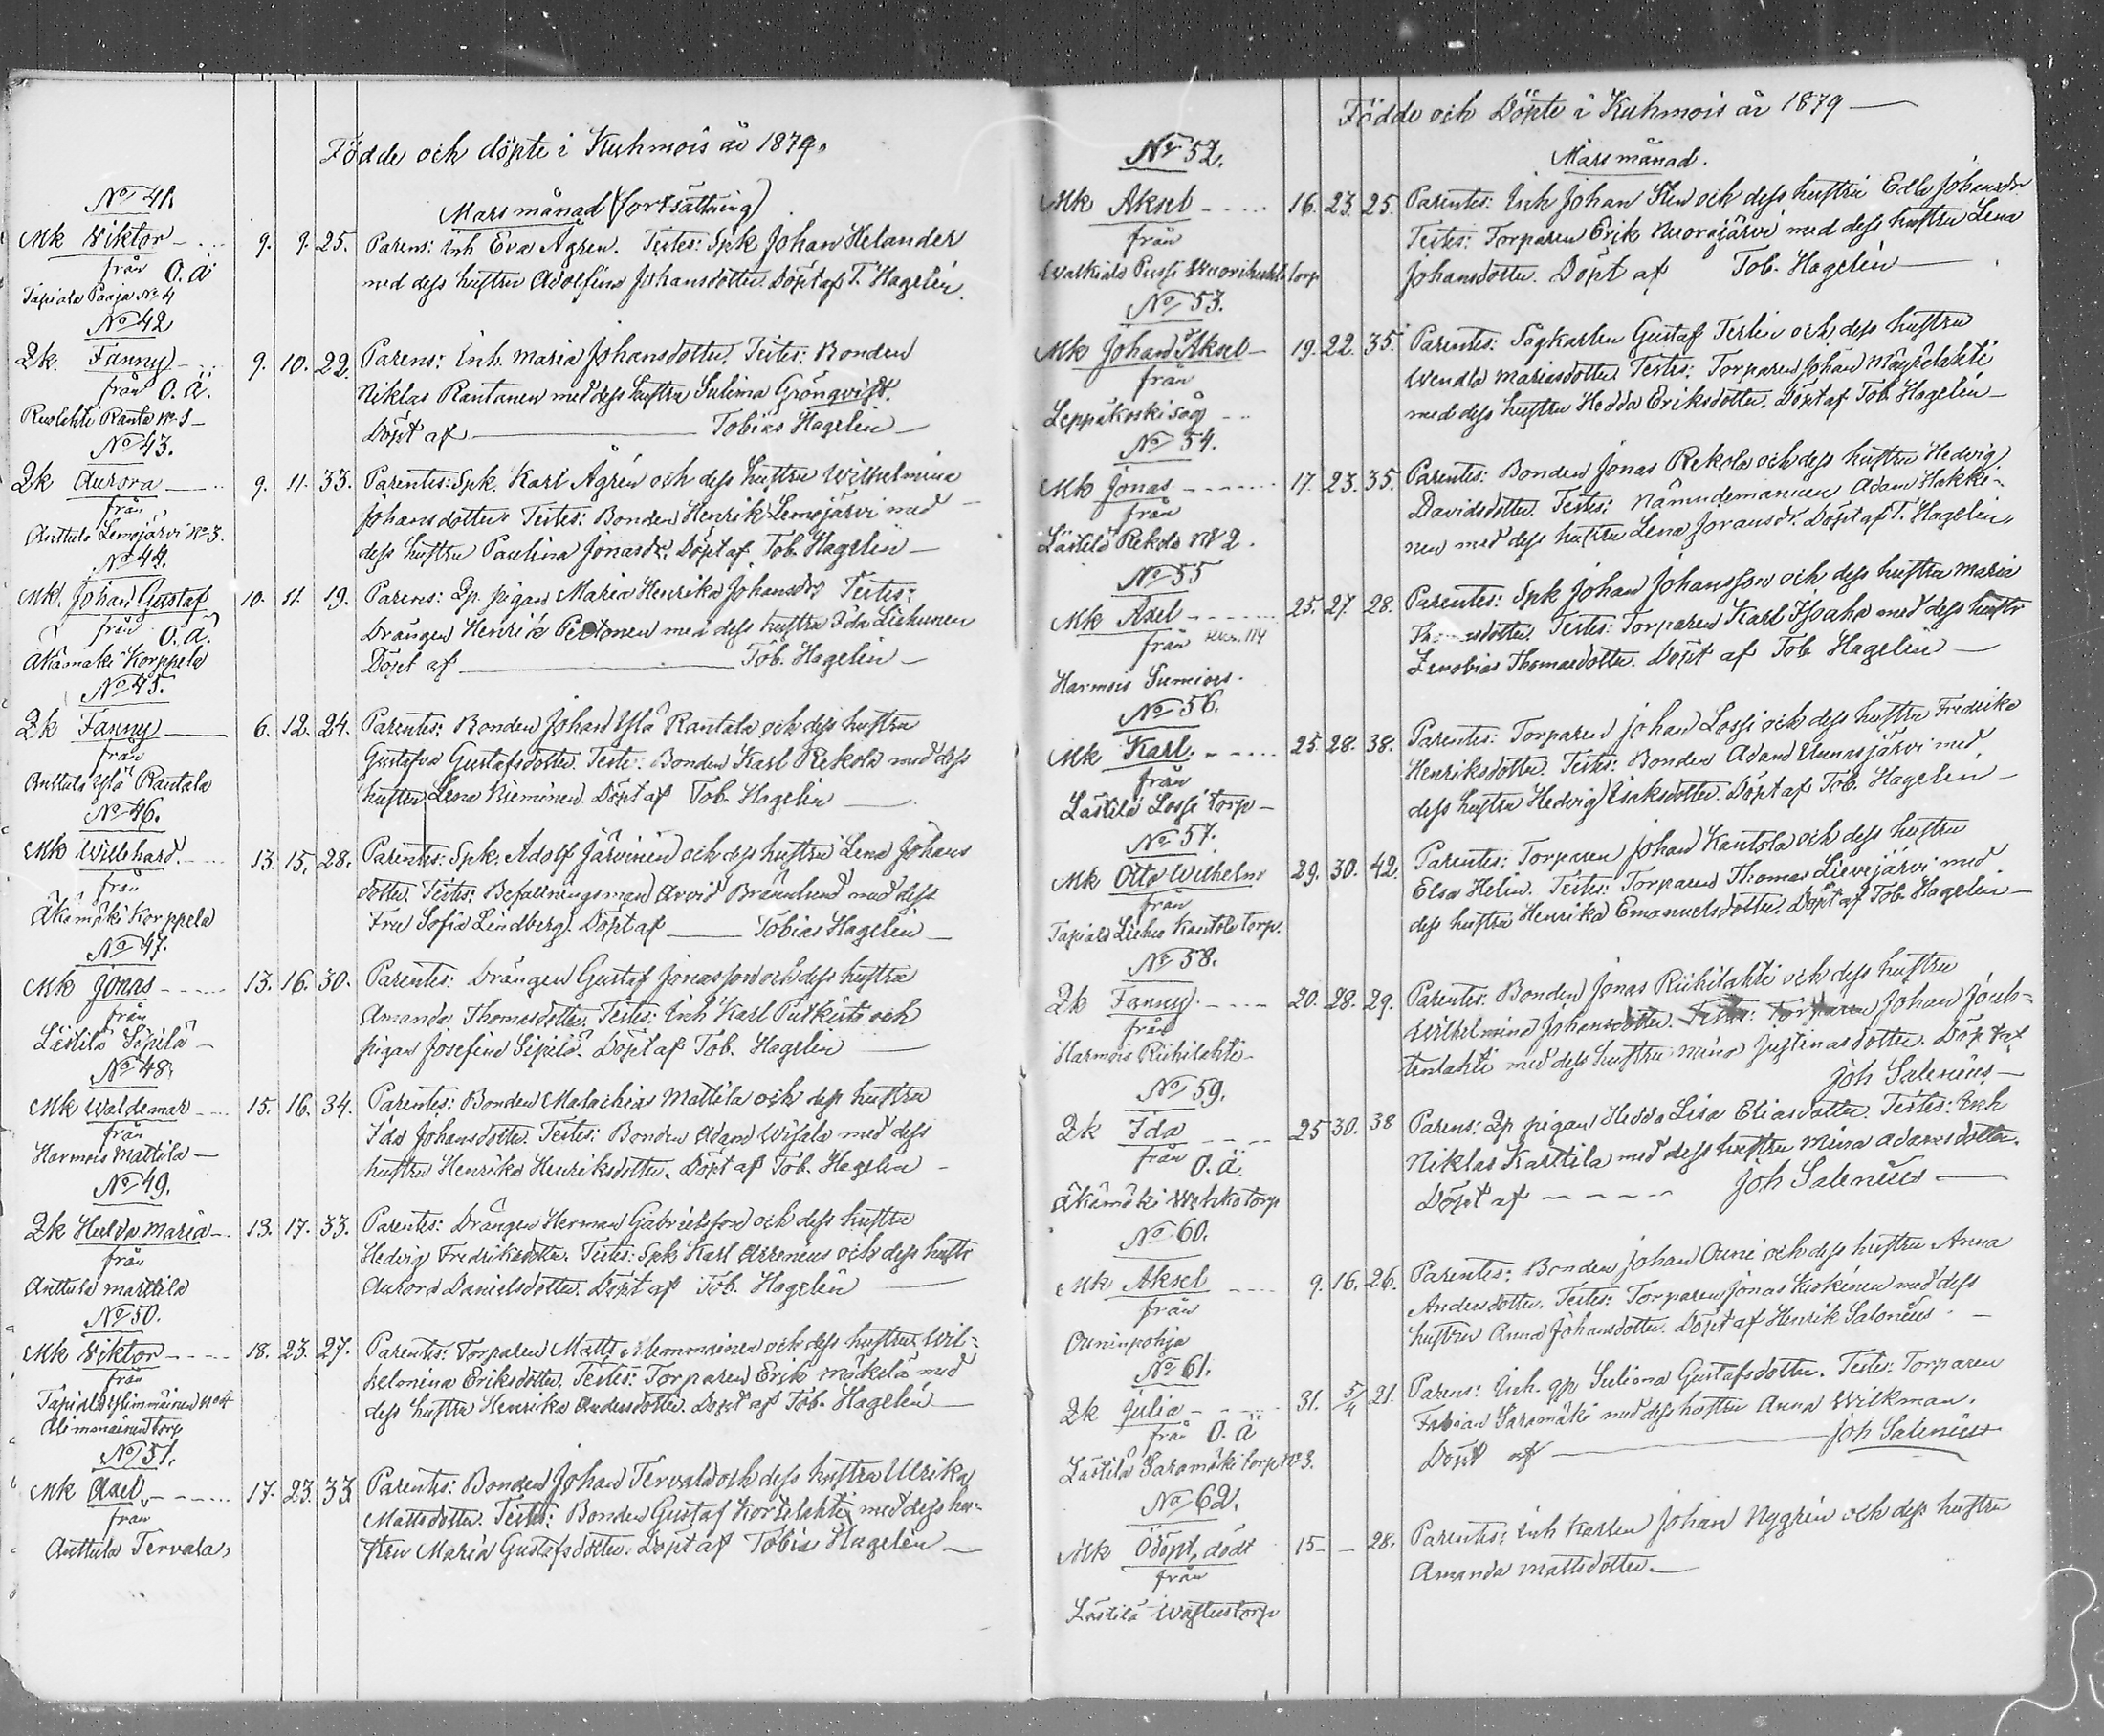 Födde och döpte i Kuhmois år 1879.
Mars månad (fortsättning)
No 41.
Mk Viktor 9. 9. 25. Parens: Inh Eva Ågren. Testes: Spk Johan Helander
från O.ä. med dess hustru Adolfina Johansdotter. Döpt af T. Hagelin.
Tapiala Parja No 4
No 42
Qk. Fanny 9. 10. 22. Parens: Inh. Maria Johansdotter. Testes: Bonden
från O.ä. Niklas Rantanen med dess hustru Sulima Grönqvist.
Ruolahti Ranta No 1 Döpt af Tobias Hagelin
No 43.
Qk Aurora 9. 11. 33. Parentes: Spk. Karl Ågrén och dess hustru Wilhelmina
från Johansdotter. Testes: Bonden Henrik Lemojärvi med
Anttula Lemojärvi No 3. dess hustru Paulina Jonasdr. Döpt af Tob. Hagelin
No 44.
Mk. Johan Gustaf 10. 11. 19. Parens: Qp. pigan Maria Henrika Johansdr Testes:
från O.ä. Drängen Henrik Pertonen med dess hustru Ida Liukunen
Äkämäki Korppela Döpt af Tob. Hagelin
No 45.
Qk Fanny 6. 12. 24. Parentes: Bonden Johan Yla Rantala och dess hustru
från Gustafva Gustafsdotter. Teste: Bonden Karl Rekola med dess
Anttula Ylä Rantala hustru Lena Nieminen. Döpt af Tob. Hagelin
No 46.
Mk Willehard. 13. 15. 28. Parentes: Spk. Adolf Järvinen och dess hustru Lena Johans
från dotter. Testes: Befallningsman Arvid Brännlund med dess
Äkämäki Korppela Fru Sofia Lindberg. Döpt af Tobias Hagelin
No 47.
Mk Jonas 13. 16. 30. Parentes: Drängen Gustaf Jonasson och dess hustru
från Amanda Thomasdotter. Testes: Inh Karl Putkisto och
Lästilä Sipilä pigan Josefina Sipilä. Döpt af Tob. Hagelin
No 48.
Mk Waldemar 15. 16. 34. Parentes: Bonden Malachias Mattila och dess hustru
från Ida Johansdotter. Testes: Bonden Adam Wisala med dess
Harmois Mattila hustru Henrika Henriksdotter. Döpt af Tob. Hagelin
No 49.
Qk Hulda Maria 13. 17. 33. Parentes: Drängen Herman Gabrielsson och dess hustru
från Hedvig Fredriksdotter. Testes: Spk Karl Arrenius och dess hustr
Anttula Marttila Aurora Danielsdotter. Döpt af Tob. Hagelin
No 50.
Mk Viktor 18. 23. 27. Parentes: Torparen Matts Alemmäinen och dess hustru Wil-
från helmina Eriksdotter. Testes: Torparen Erik Mäkelä med
Tapiala Ylimmäinen No 4 dess hustru Henrika Andersdotter. Döpt af Tob. Hagelin
Alimmainen torp
No 51.
Mk Axel 17. 23. 33. Parentes: Bonden Johan Tervala och dess hustru Ulrika
från Mattsdotter. Testes: Bonden Gustaf Kortelahti med dess hu-
Anttula Tervala, stru Maria Gustafsdotter. Döpt af Tobias Hagelin
Födde och Döpte i Kuhmois år 1879
Mars månad.
No 52.
Mk Aksel 16. 23. 25. Parentes: Inh Johan Sten och dess hustru Edla Johansdr
från Testes: Torparen Erik Nuorajärvi med dess hustru Lena
Walkiala Pussi Wuorihuhta torp Johansdotter. Döpt af Tob. Hagelin
No 53.
Mk Johan Aksel 19. 22. 35. Parentes: Sågkarlen Gustaf Terlin och dess hustru
från Wendla Mariasdotter. Testes: Torparen Johan Mäyrälahti
Leppäkoski såg med dess hustru Hedda Eriksdotter. Döpt af Tob. Hagelin
No 54.
Mk Jonas 17. 23. 35. Parentes: Bonden Jonas Rekola och dess hustru Hedvig
från Davidsdotter. Testes: Nämndemannen Adam Hakki-
Lästilä Rekola No 2. nen med dess hustru Lena Joransdr. Döpt af T. Hagelin
No 55
Mk Axel 25. 27. 28. Parentes: Spk Johan Johansson och dess hustru Maria
från Thomasdotter. Testes: Torparen Karl Isoaho med dess hustr
Harmois Sumiois. Zenobias Thomasdotter. Döpt af Tob. Hagelin
No 56.
Mk Karl. 25. 28. 38. Parentes: Torparen Johan Lossi och dess hustru Fredrika
från Henriksdotter. Testes: Bonden Adam Uunasjärvi med
Lästilä Lossi torp dess hustru Hedvig Isaksdotter. Döpt af Tob. Hagelin
No 57.
Mk Otto Wilhelm 29. 30. 42. Parentes: Torparen Johan Kantola och dess hustru
från Elsa Helin. Testes: Torparen Thomas Lievejärvi med
Tapiala Liehu Kantola torp. dess hustru Henrika Emanuelsdotter. Döpt af Tob. Hagelin
No 58.
Qk Fanny. 20. 28. 29. Parentes: Bonden Jonas Riihilahti och dess hustru
från Wilhelmina Johansdotter. Testes: Torparen Johan Jouh-
Harmois Riihilahti tenlahti med dess hustru Mina Justinasdotter. Döpt af
Joh Salenius
No 59.
Qk Ida 25 30. 38 Parens: Qp pigan Hedda Lisa Eliasdotter. Testes: Inh
från O.ä. Niklas Karttila med dess hustru Mina Adamsdotter.
Äkämäki torp Döpt af Joh Salenius
No 60.
Mk Aksel 9. 16. 26. Parentes: Bonden Johan Ouni och dess hustru Anna
från Andersdotter. Testes: Torparen Jonas Koskinen med dess
Ouninpohja hustru Anna Johansdotter. Döpt af Henrik Salonius
No 61.
Qk Julia 31. 5/4 21. Parens: Inh. qp Juliana Gustafsdotter. Testes: Torparen
från O.ä Fabian Saramäki med dess hustru Anna Wilkman.
Lästilä Saramäki torp No 3. Döpt af Joh Salenius
No 62.
Mk Odöpt, dödt 15 – 28. Parentes: Inh Karlen Johan Nygrén och dess hustru
från Amanda Mattsdotter
Lästilä torp